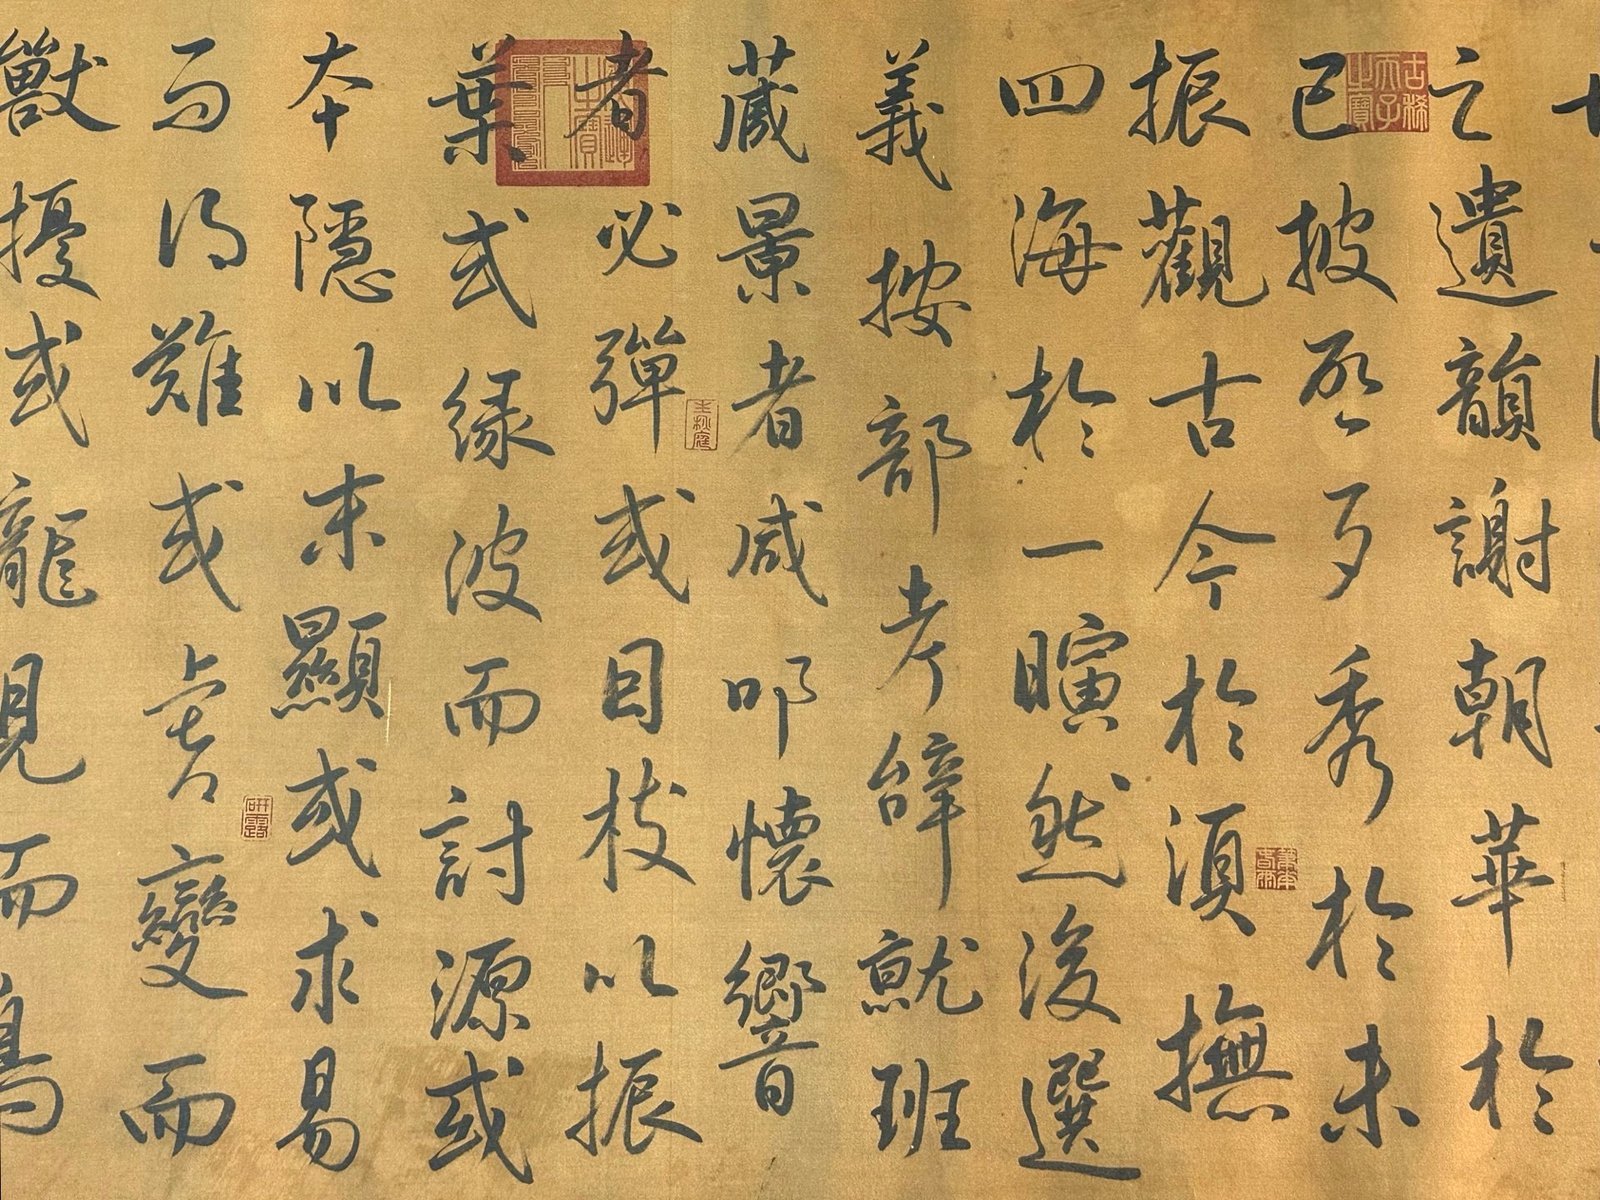 之遺韻謝朝華於
已披啟夕秀於未
振觀古今於須撫
四海於一瞚然後選
義按部考辭就班
藏景者咸叩懷響
者必彈或因枝以振
葉或緣波而討源或
本隱以末顯或求易
而得難或虎變而
獸擾或龍見而鳥
古稀天子之寶
研露